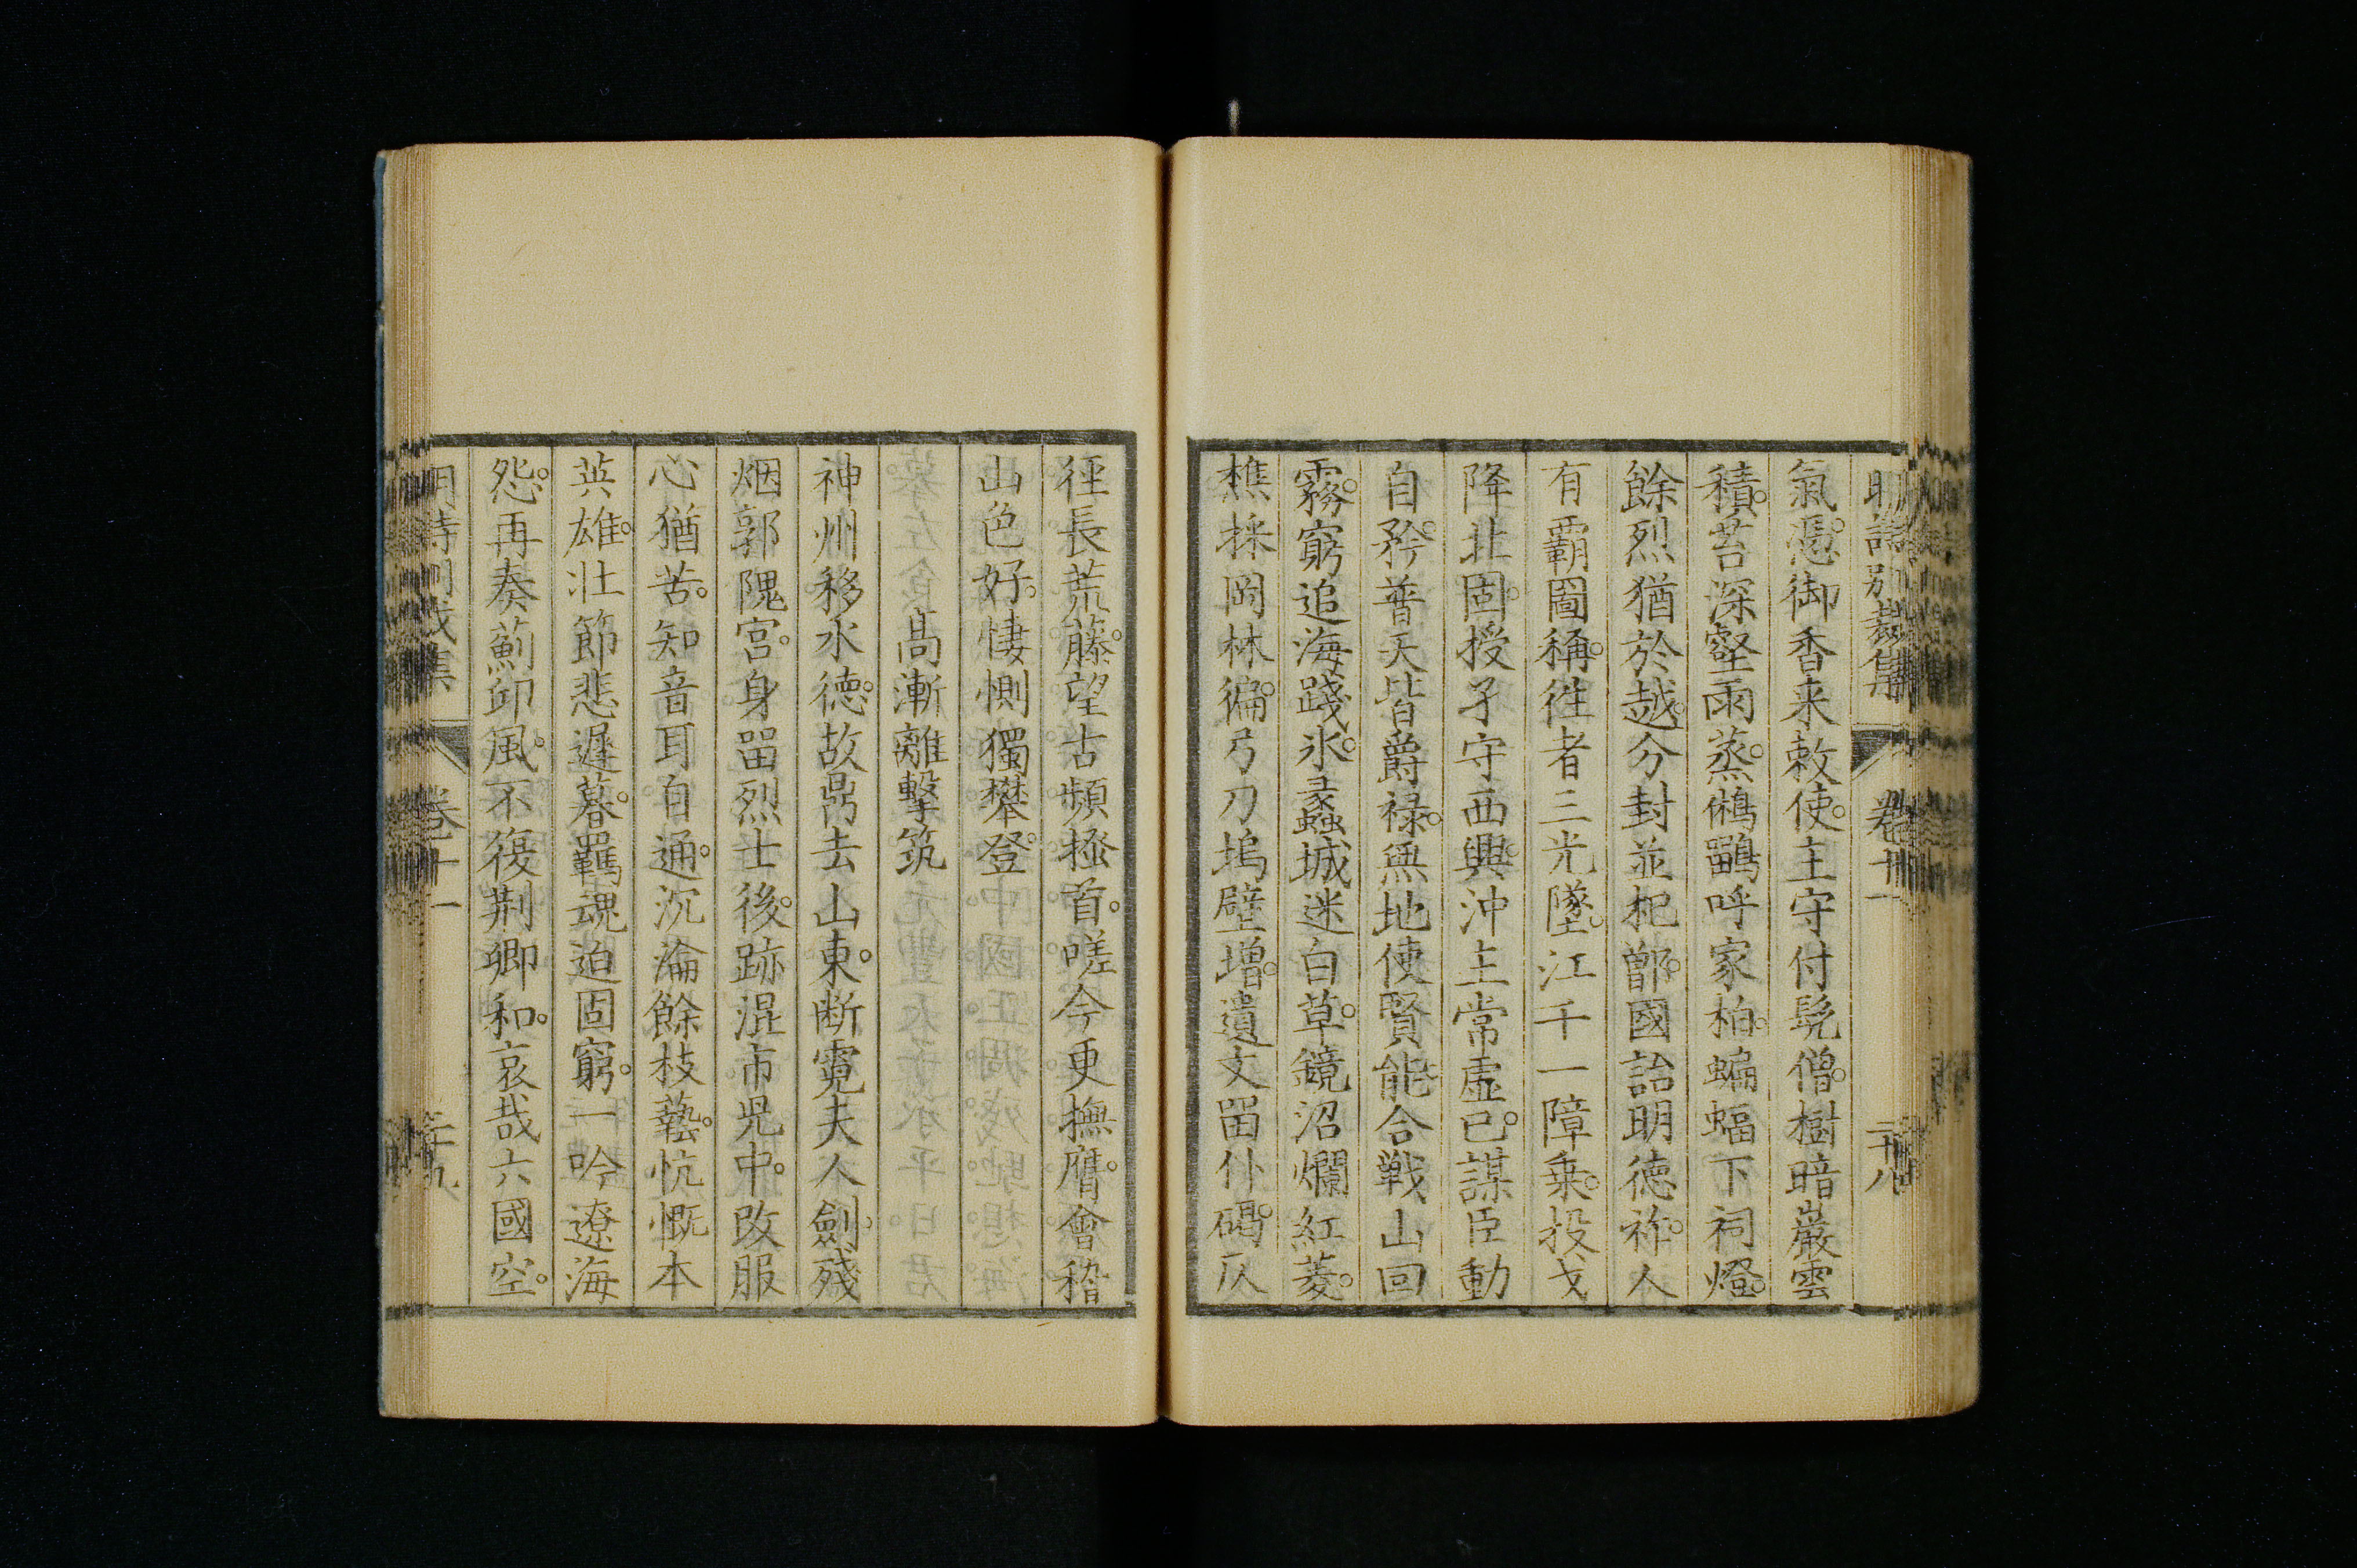 明詩別裁集 卷十一 二十八
氣憑御香来敕使主守付髡僧樹暗巖雲
積苔深壑雨蒸鵂鶹呼家柏蝙蝠下祠燈
餘烈猶於越分封並杞鄫國詒明德祚人
有霸圖稱徃者三光墜江干一障乗投戈
降北固授孑守西興沖主常虛已謀臣動
自矜普天皆爵禄無地使賢能合戰山回
霧窮追海踐氷蠡城迷白草鏡沼爛紅菱
樵採岡林徧弓刀塢壁增遺文畱仆碣仄
徑長荒藤望古頻搔首嗟今更撫膺會稽
山色好悽惻獨攀登
高漸離擊筑
神州移水德故鼎去山東断霓夫人劍殘
烟郭隗宮身畱烈士後跡混市児中改服
心猶苦知音耳自通沉淪餘枝藝忼慨本
英雄壮節悲遲暮羈魂迫固窮一吟遼海
怨再奏薊邱風不復荆卿和哀哉六國空
明詩別裁集 卷十一 二十九